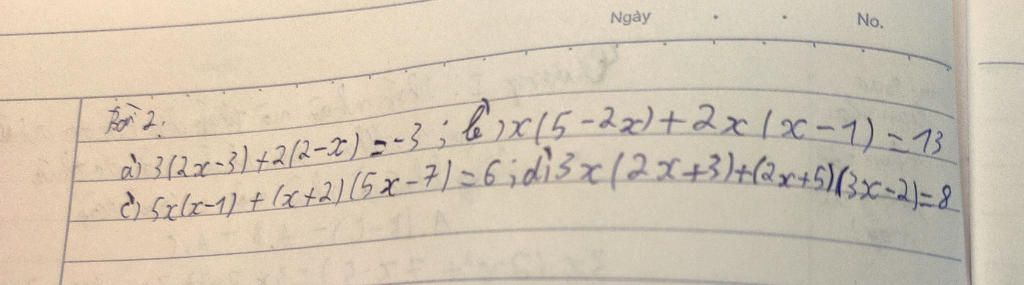 Ngày No.
Bài 2:
a) 3(2x-3)+2(2-x)=-3; b) x(5-2x)+2x(x-1)=13
c) 5x(x-1)+(x+2)(5x-7)=6; d) 3x(2x+3)+(2x+5)(3x-2)=8